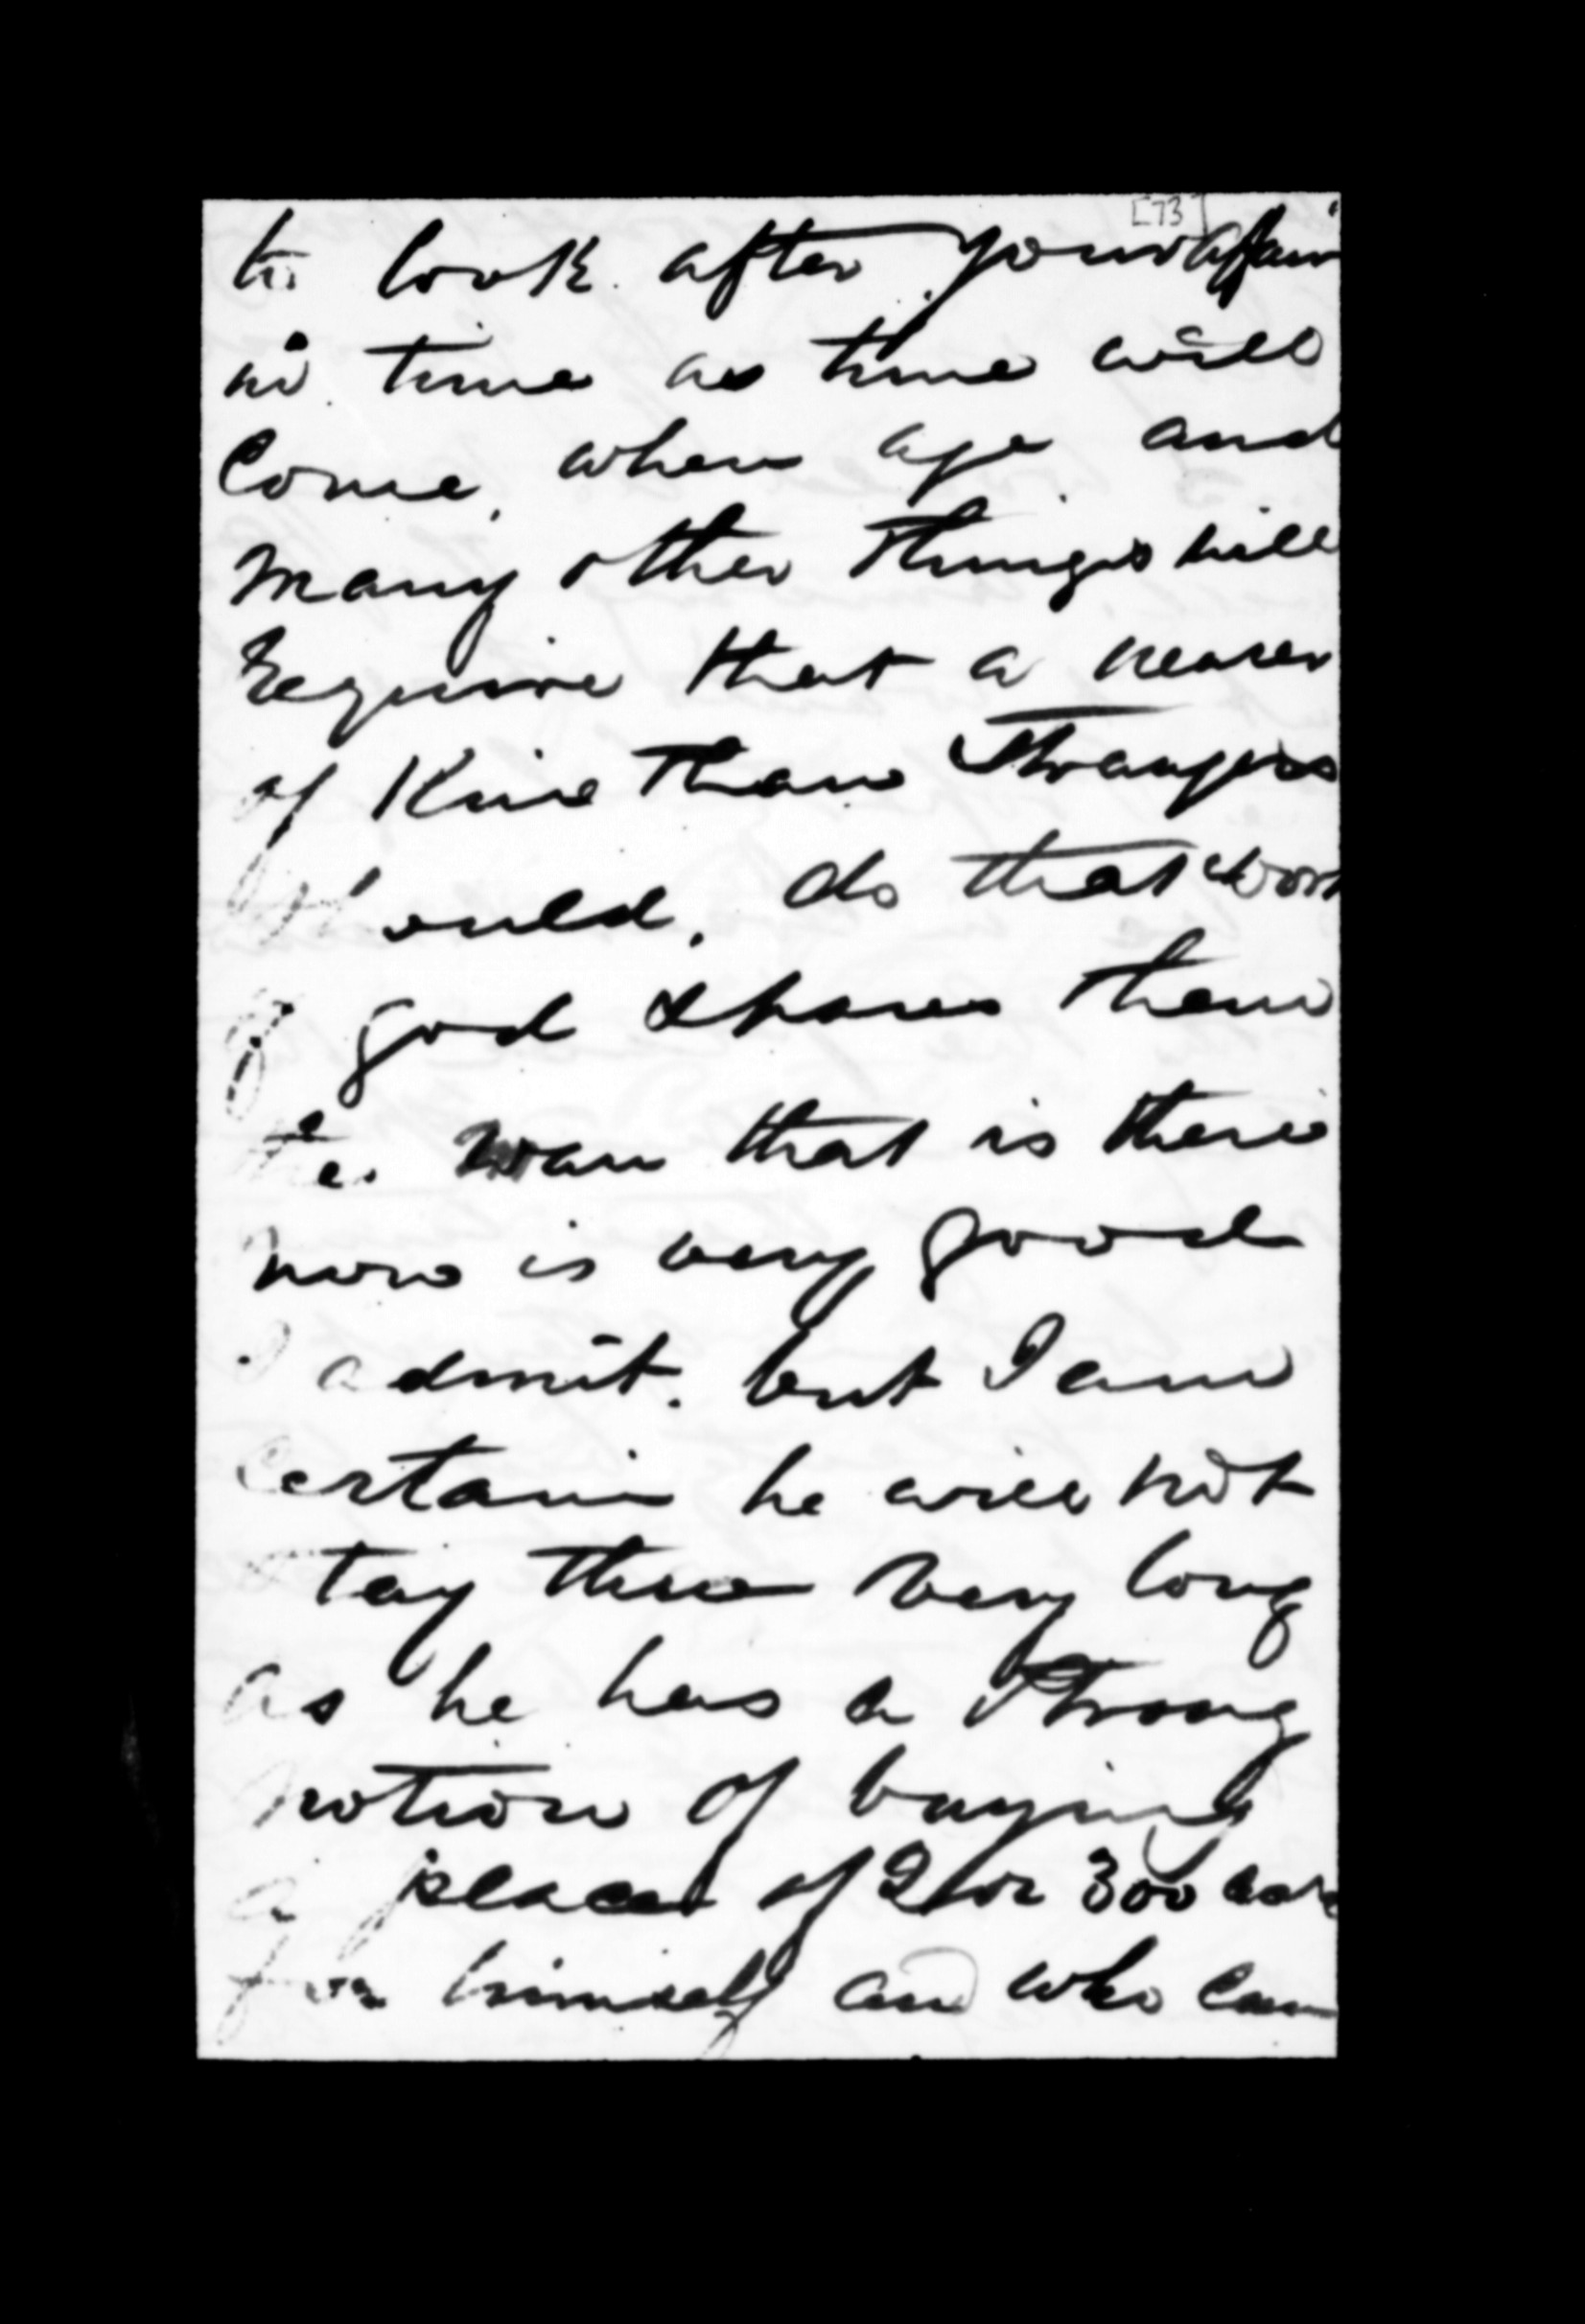 [73]
to look after your affair
in time as time will
Come, when age and
many other things will
Require that a nearer
of Kine than Strangers
should. do that work
if god spares them
the man that is there
now is very good
I admit. but I am
Certain he will not
stay there very long
as he has a strong
notion of buying
a place of 2 or 300 acre
for himself and who can